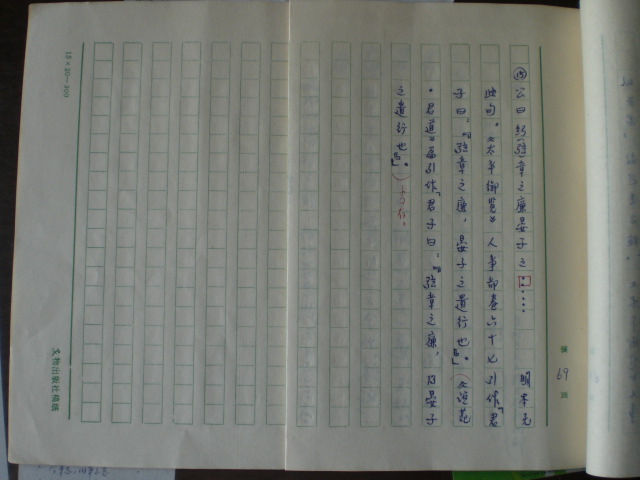 第 69 页
公曰弦章之廉晏子之□…… 明本无
此句。《太平御览》人事部卷六十七引作「君
子曰：『弦章之廉，晏子之遗行也』」。（《说苑
·君道》篇引作「君子曰：『弦章之廉，乃晏子
之遗行也』」。）
15×20=300
文物出版社稿纸